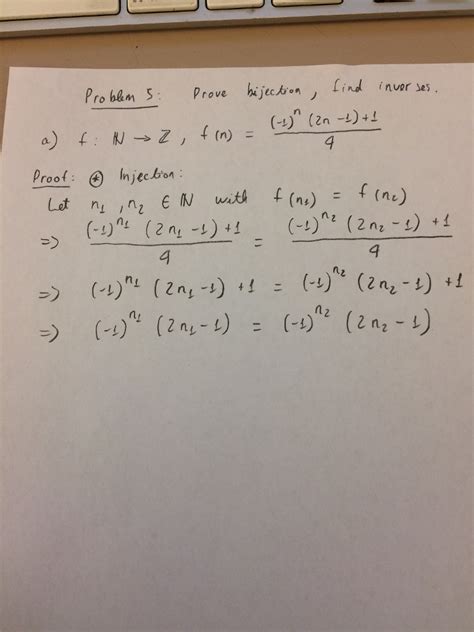 Problem 5: Prove bijection, find inverses.
a) f: ℕ → ℤ, f(n) = ((-1)^n (2n-1)+1)/4
Proof: ⊛ Injection:
Let n₁, n₂ ∈ ℕ with f(n₁) = f(n₂)
=> ((-1)^n₁ (2n₁-1)+1)/4 = ((-1)^n₂ (2n₂-1)+1)/4
=> (-1)^n₁ (2n₁-1)+1 = (-1)^n₂ (2n₂-1)+1
=> (-1)^n₁ (2n₁-1) = (-1)^n₂ (2n₂-1)